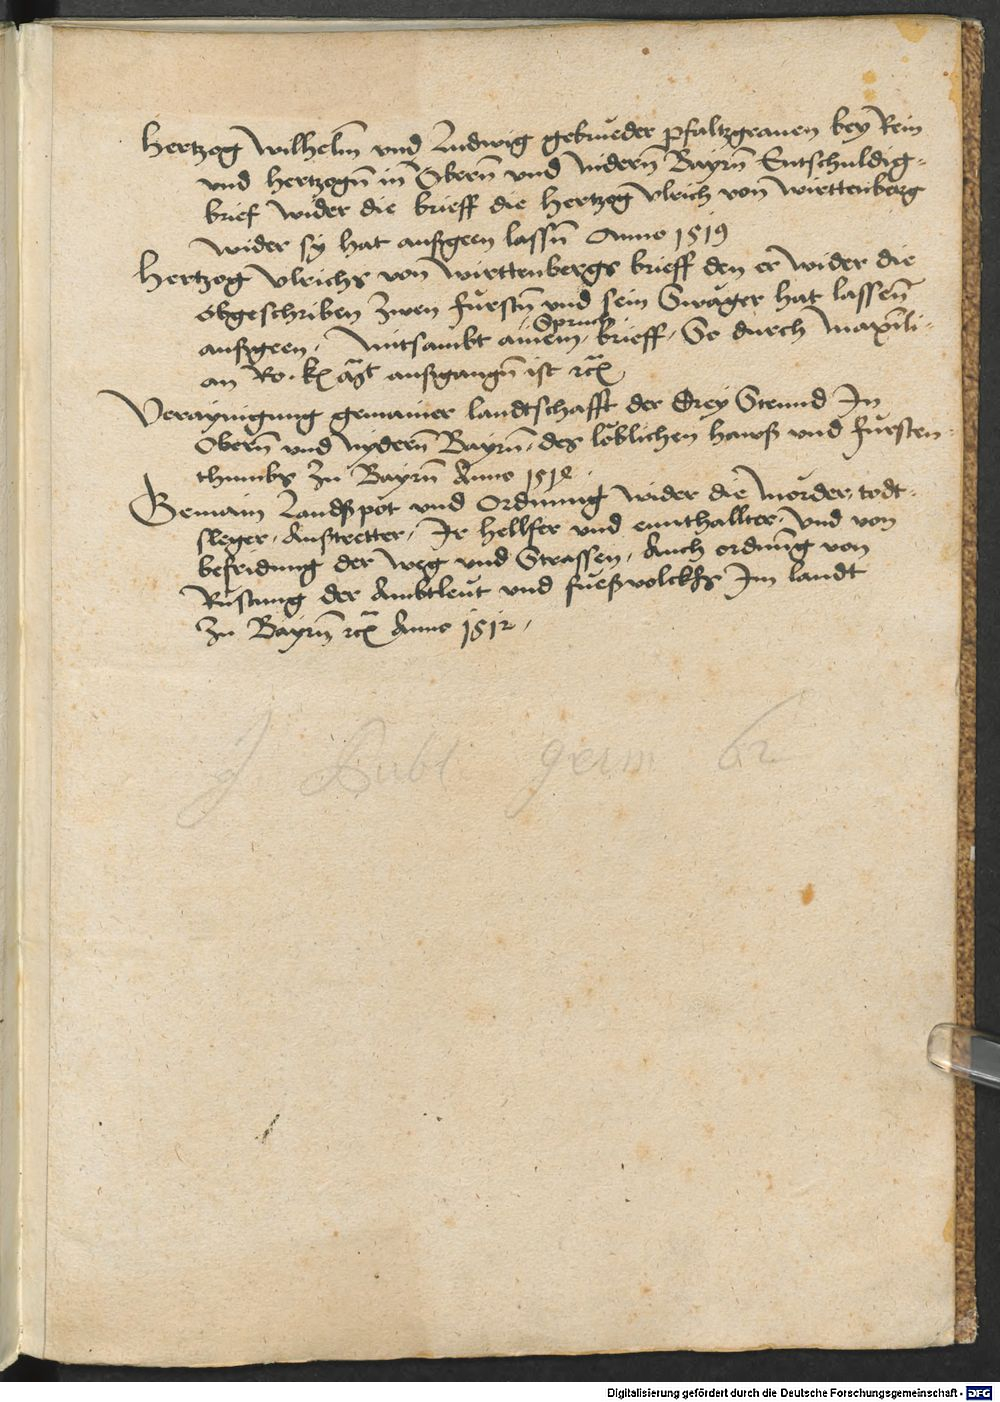 Hertzog Wilhelm̄ vnd Ludwig gebrueder pfaltzgrauen bey Rein
vnd hertzogn̄ in Obern̄ vnd Nidern̄ Bayrn̄ Entschuldig-
brief wider die brieff die hertzog vlrich von wirttenberg
wider sy hat außgeen lassn̄ Anno 1519
Hertzog vlrichs von wirttenbergs brieff den er wider die
obgeschriben zwen fürstn̄ vnd sein Swäger hat lassenn̄
außgeen. Mitsambt ainem Spruch brieff. So durch Maximili-
an Ro. k aūßgangn̄ ist
Veraynigung gemainer landtschafft der Drey Stennd In
Obern̄ vnd Nydern̄ Bayrn̄. des löblichen hawß vnd Fürsten-
thumbs zu Bayrn̄ Anno
Gemain Landßpot vnd Ordnung wider die Mörder, todt-
sleger. Außtretter. Ir hellfer vnd ennthallter. vnd von
befridung der weg vnd Strassen. Auch ordnūng von
Rüstung der Ambtleüt vnd fueßvolckhs Im landt
zu Bayrn̄ Anno 1512.
J Publ germ 62
Digitalisierung gefördert durch die Deutsche Forschungsgemeinschaft - DFG